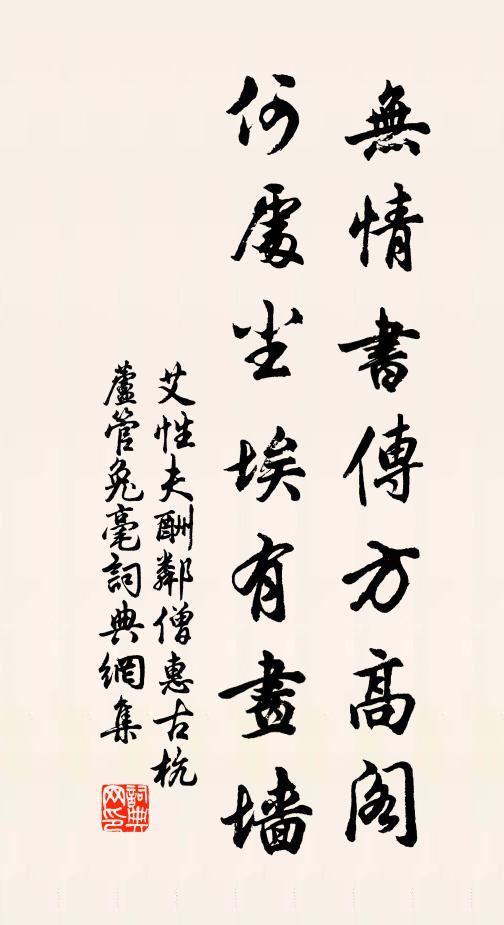 無情書傳方高閣
何處尘埃有畫墻
艾性夫酬鄰僧惠古杭
蘆管兔毫詞典網集
詞典网印